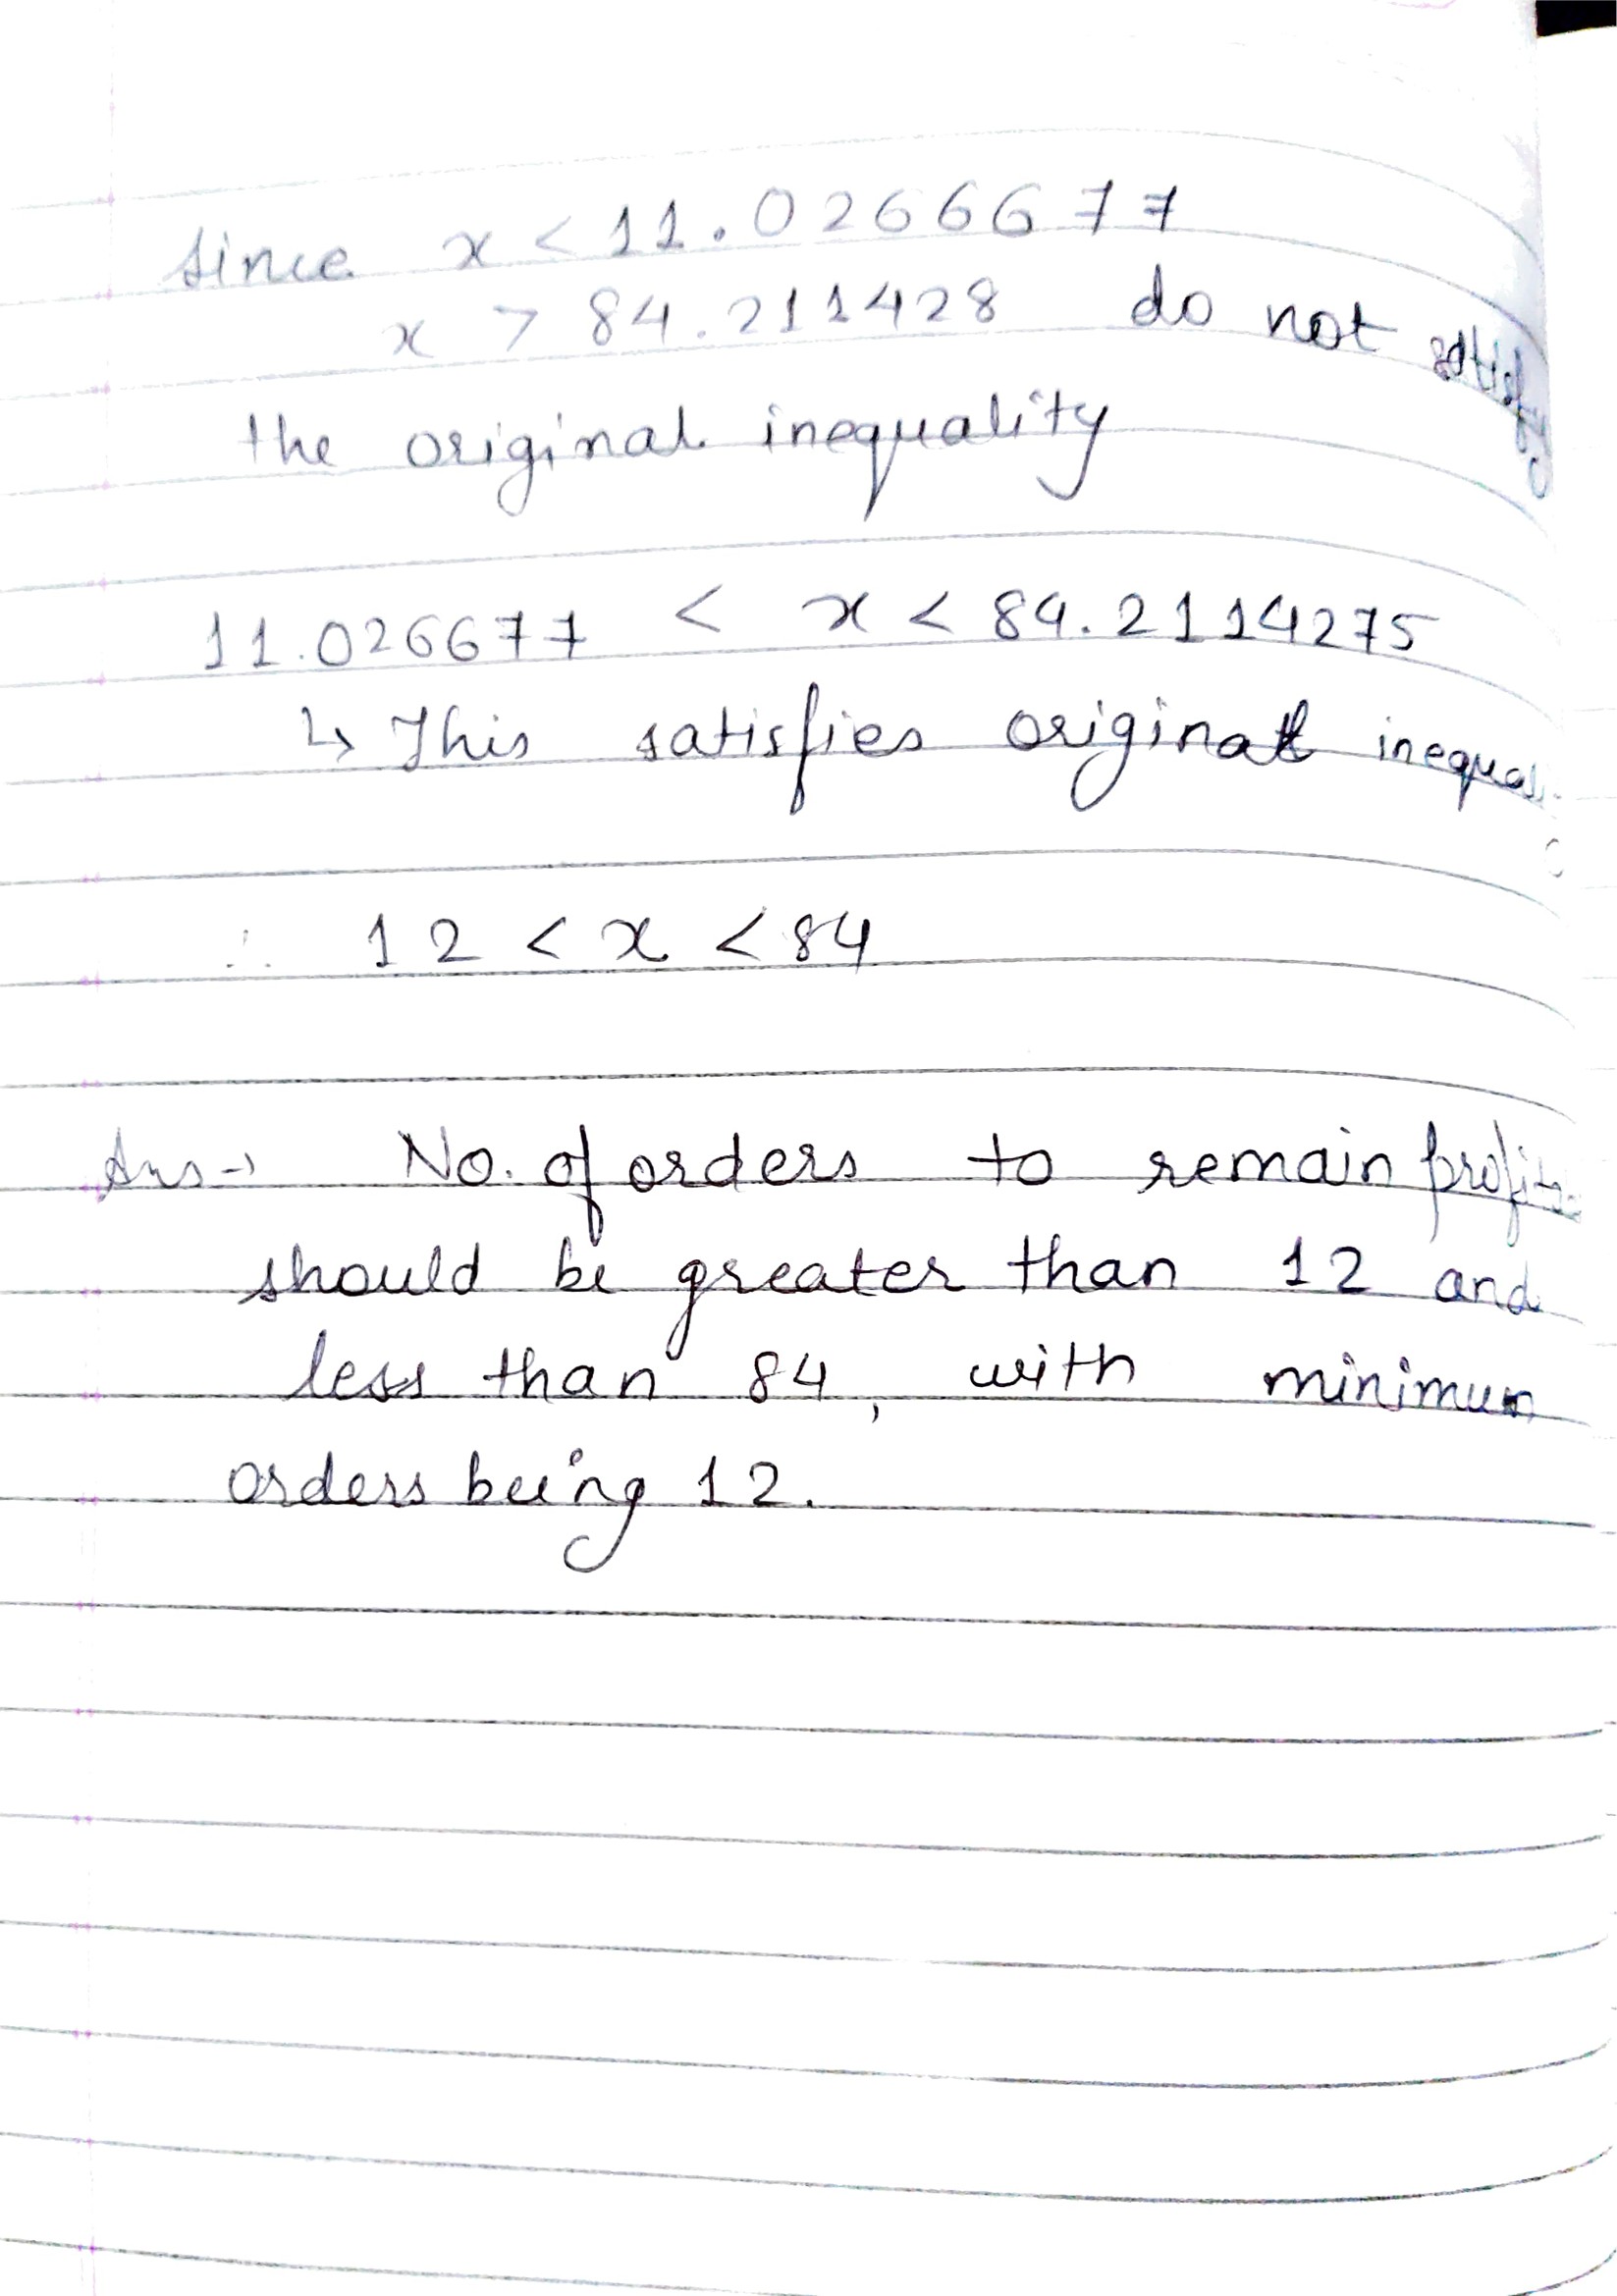 since x < 11.0266677
x > 84.211428 do not satisfy
the original inequality
11.026677 < x < 84.2114275
↳ This satisfies original
∴ 12 < x < 84
Ans → No. of orders to remain
should be greater than 12 and
less than 84, with minimum
orders being 12.